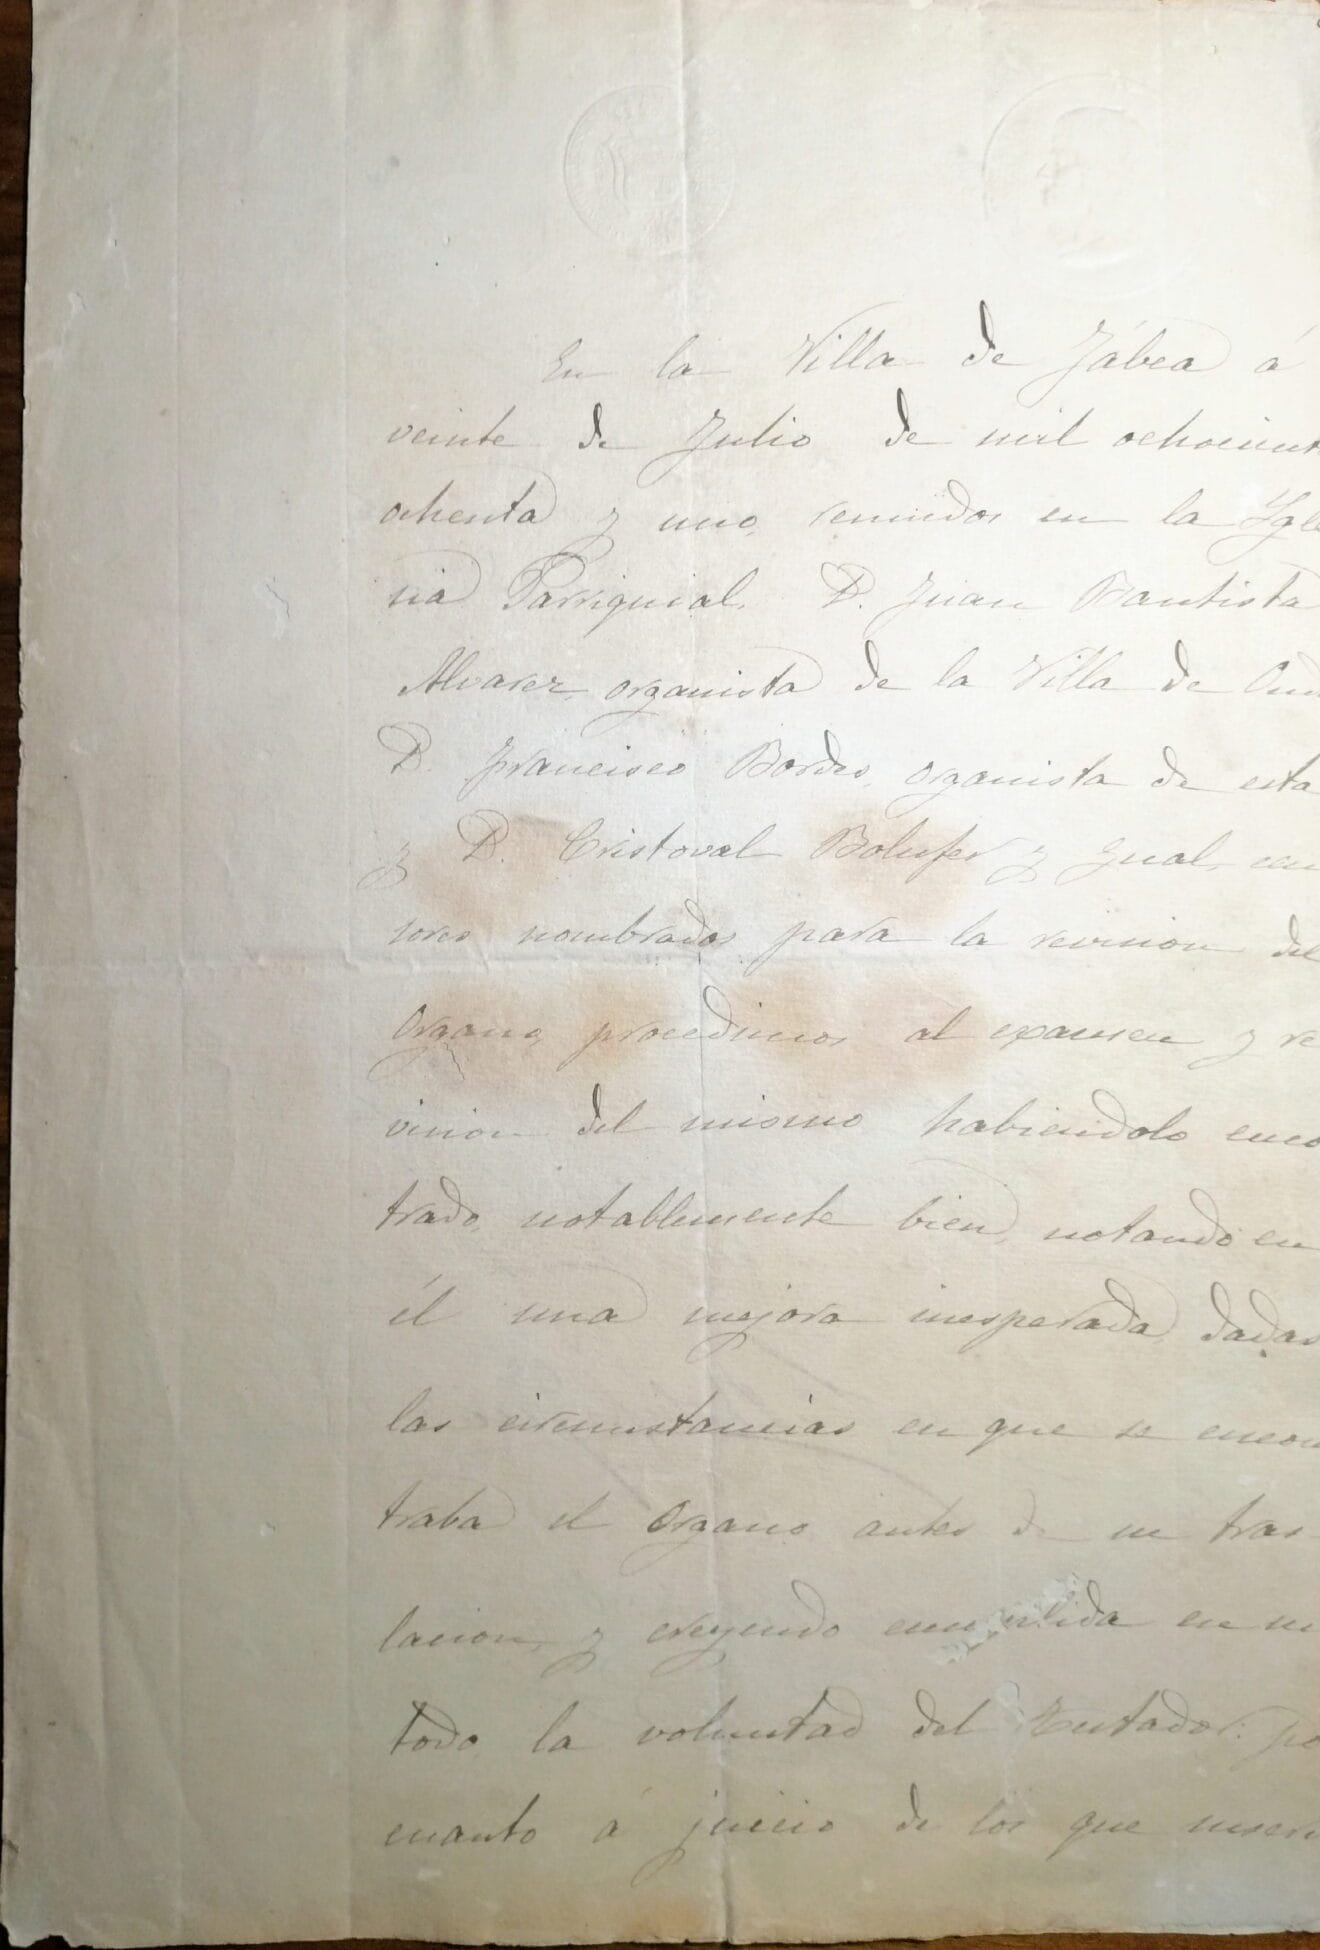 En la Villa de Jábea á
veinte de Julio de mil ochocient
ochenta y uno, reunidos en la Ygle
sia Parriquial, D. Juan Bautista
Alvarez, organista de la Villa de Ond
D. Francisco Bordes, organista de esta
y D. Cristoval Bolufer y Gual, cen
sores nombrados para la revision del
Organo, procedimos al examen y re
vision del mismo habiendolo enco
trado, notablemente bien, notando en
él una mejora inesperada, dadas
las circunstancias en que se encon
traba el Organo antes de su tras-
lacion, y creyendo cumplida en su
todo la voluntad del Testador: po
cuanto á juicio de los que suscri